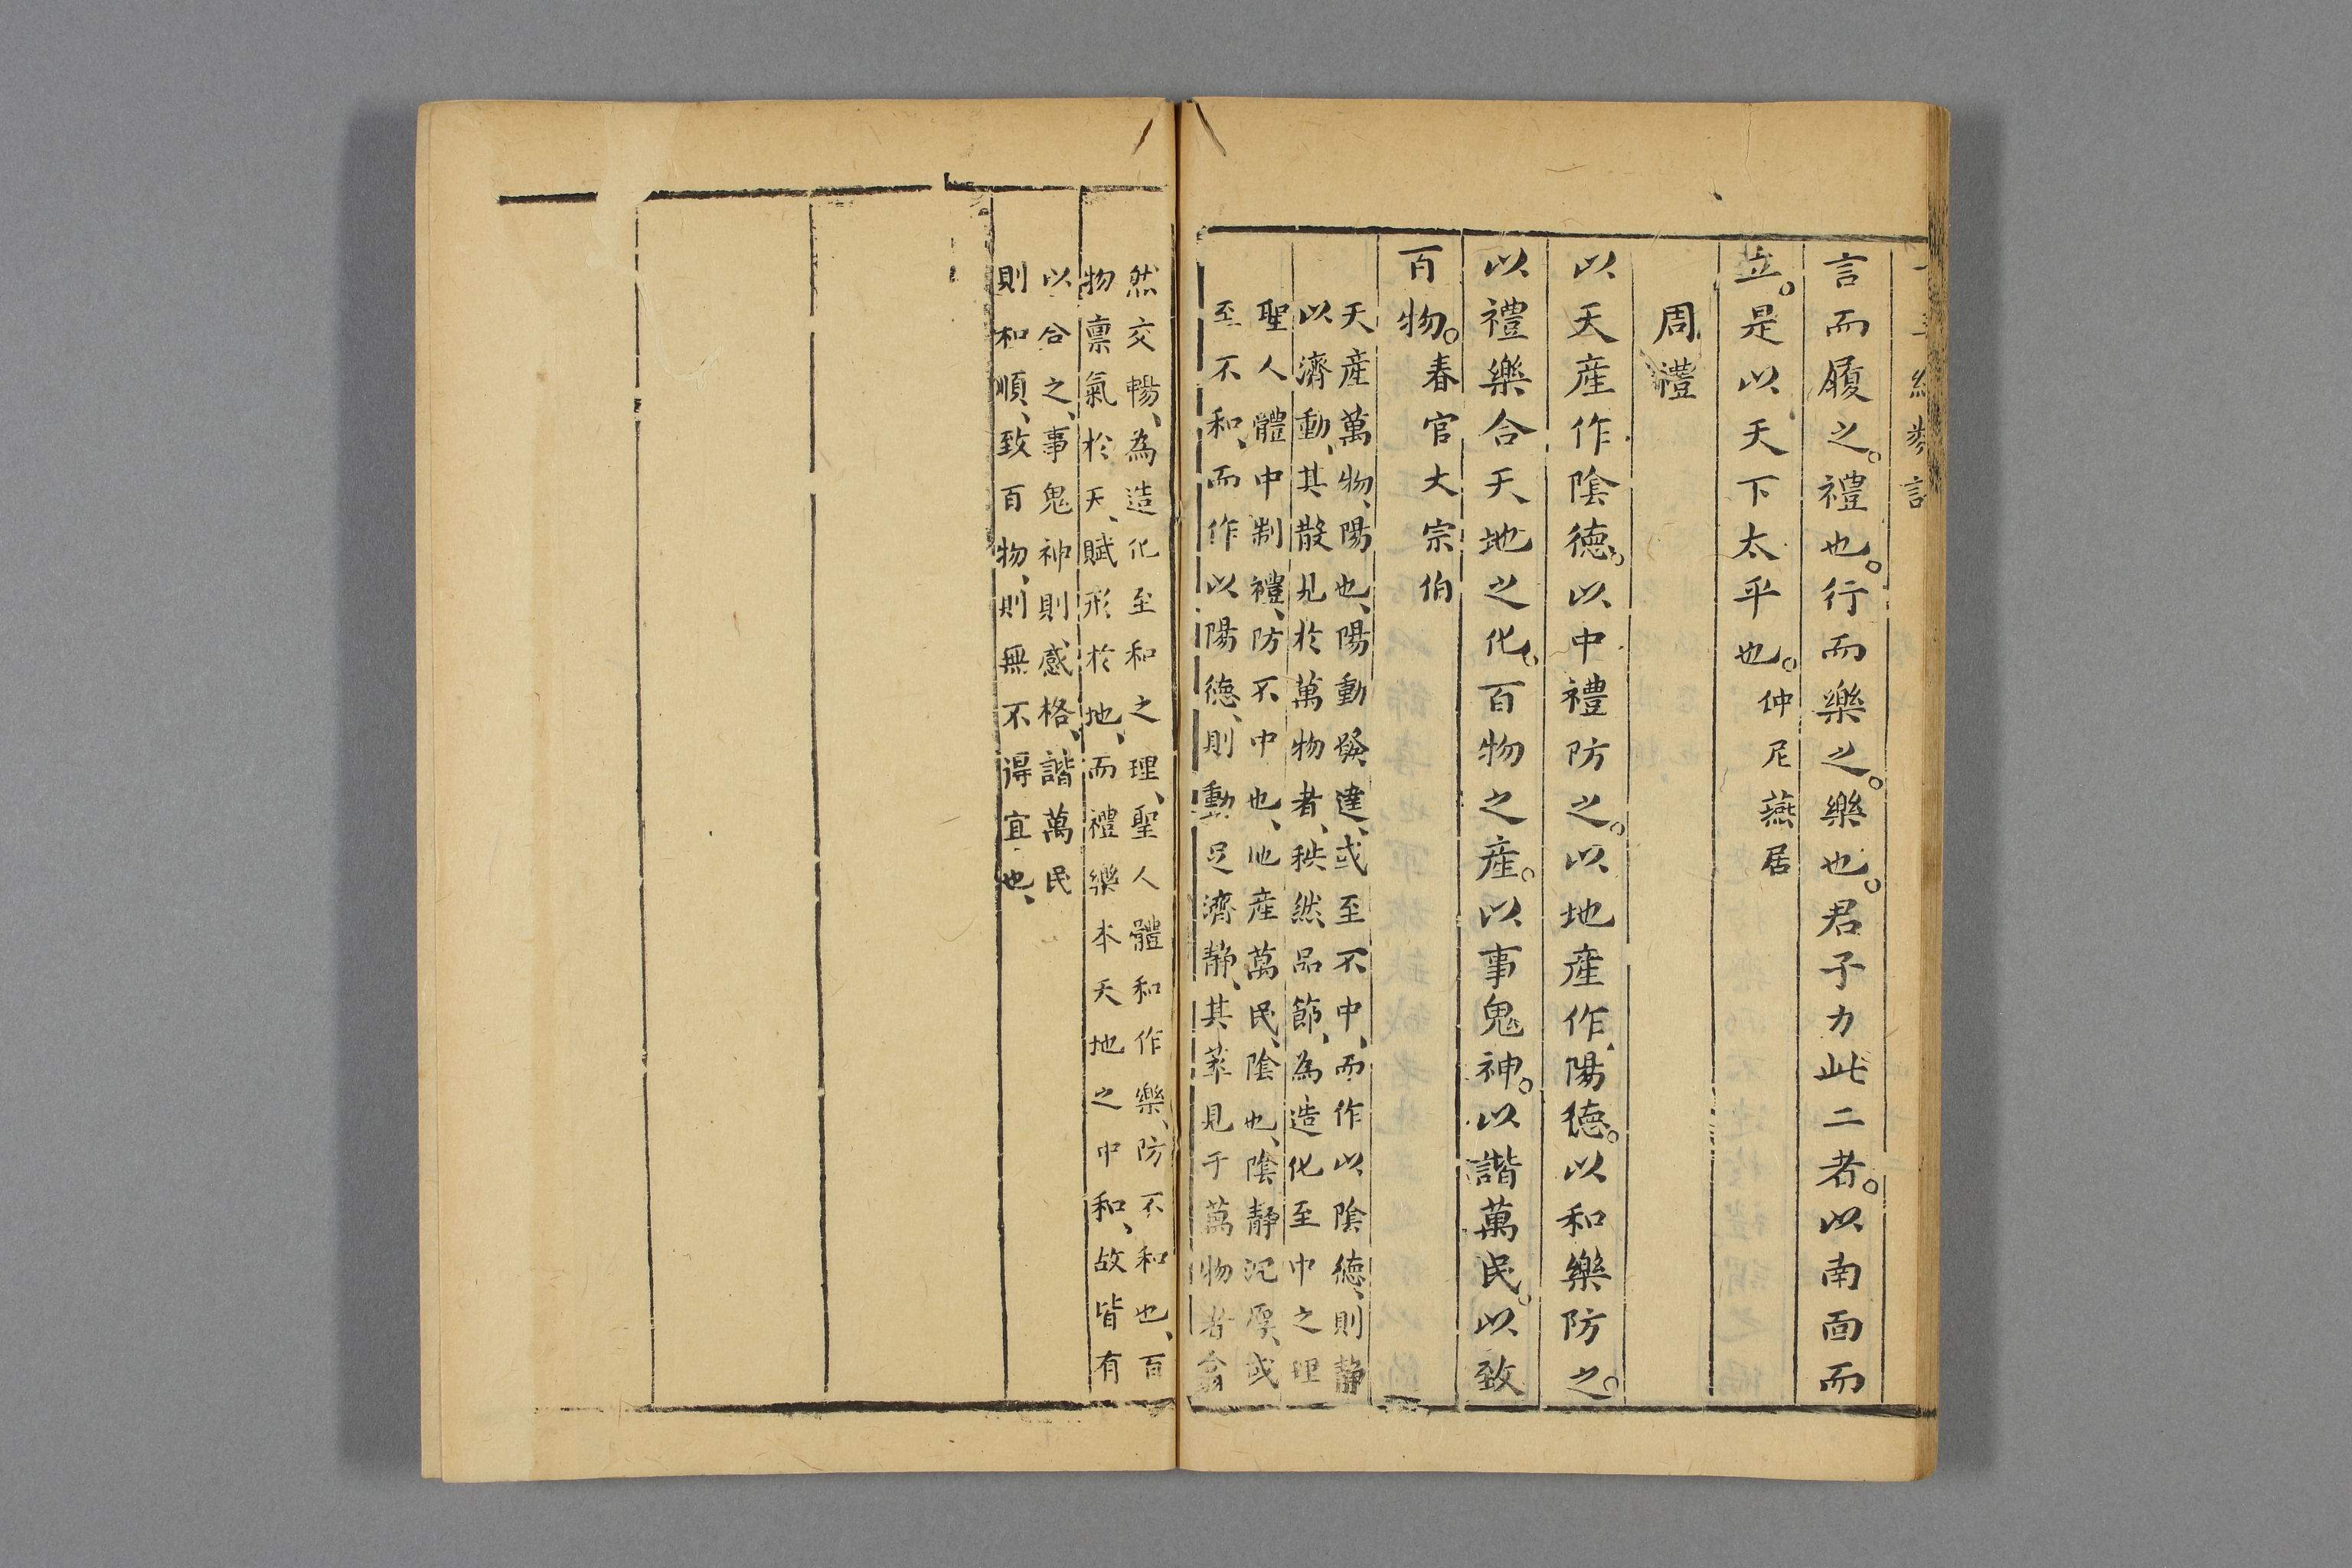 言而履之。禮也。行而樂之。樂也。君子力此二者。以南面而
立。是以天下太平也。仲尼燕居
周禮
以天產作陰德。以中禮防之。以地產作陽德。以和樂防之。
以禮樂合天地之化。百物之產。以事鬼神。以諧萬民。以致
百物。春官大宗伯
天產萬物、陽也、陽動發達、或至不中、而作以陰德、則静
以濟動、其散見於萬物者、秩然品節、為造化至中之理
聖人體中制禮、防不中也、地產萬民、陰也、陰靜沉厚、或
至不和、而作以陽德、則動足濟静、其萃見于萬物者翕
然交暢、為造化至和之理、聖人體和作樂、防不和也、百
物禀氣於天、賦形於地、而禮樂本天地之中和、故皆有
以合之、事鬼神則感格、諧萬民
則和順、致百物、則無不得宜也、